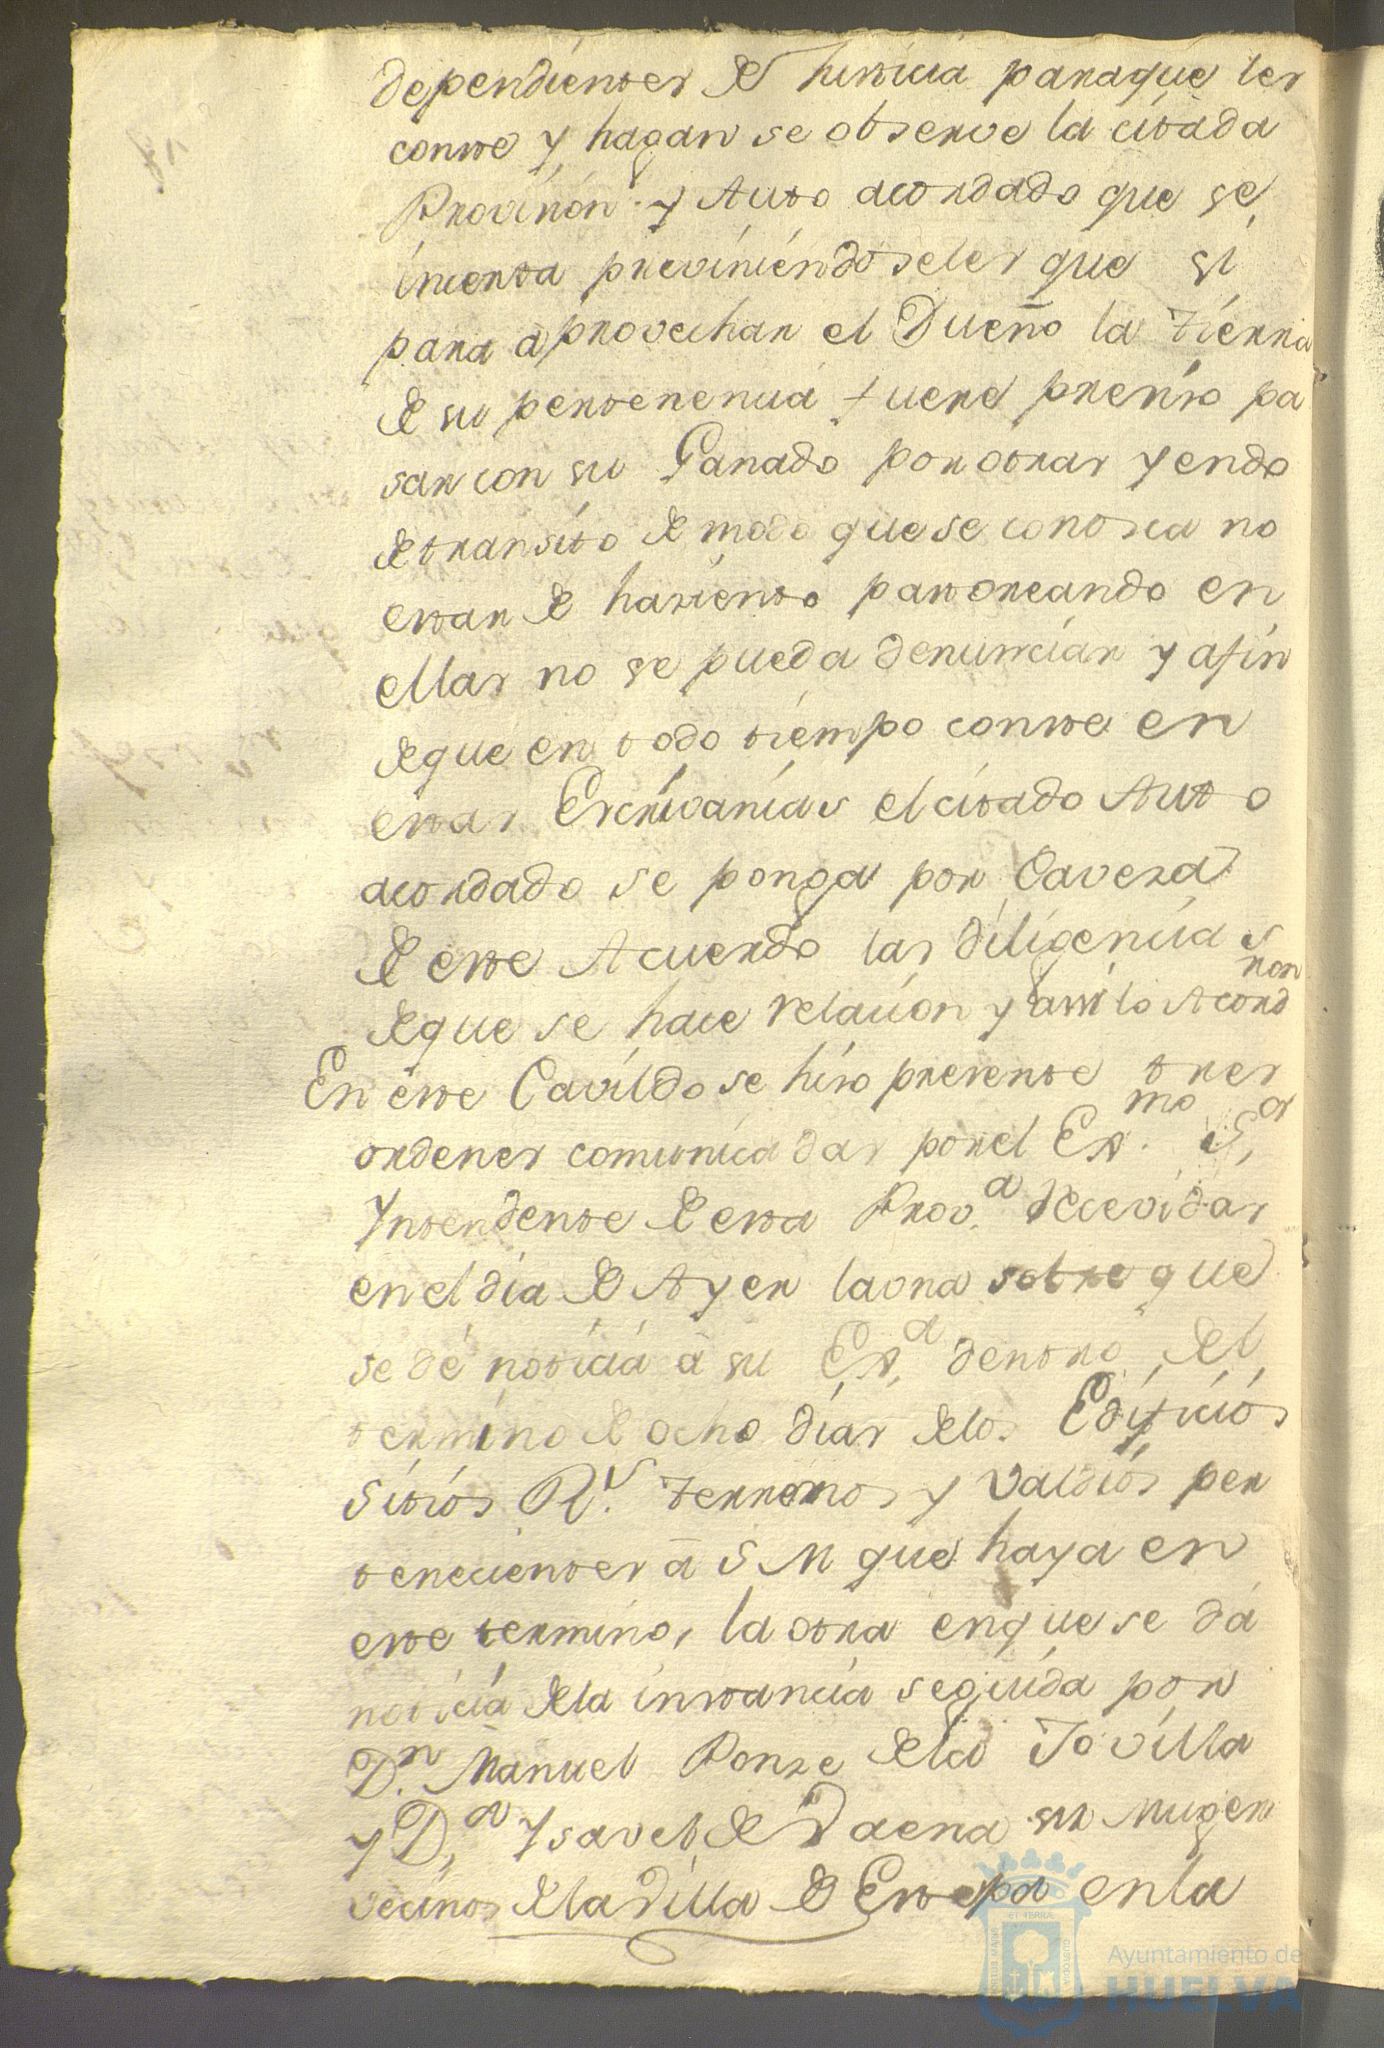 dependientes de Justicia paraque les
conste y hagan se observe la citada
Provision y Auto acordado que se
incerta previniendoseles que si
para aprovechar el Dueño la tierra
de su pertenencia fuere preciso pa
sar con su Ganado por otras yendo
de transito de modo que se conosca no
estar de haciento pastoreando en
ellas no se pueda denunciar y afin
de que en todo tiempo conste en
estas Escrivanias el citado Auto
acordado se ponga por Caveza
de este Acuerdo las diligencias
de que se hace relacion y assi lo Acordaron
En este Cavildo se hizo presente tres
ordenes comunicadas por el Exmo. Sor
Yntendente de esta Prova. Recevidas
en el dia de Ayer la una sobre que
se dé noticia á su Exa. dentro del
termino de ocho dias delos Edificios
Sitios Rs. terrenos y Valdios per
tenecientes á S M que haya en
este termino, la otra en que se dá
noticia dela instancia seguida por
Dn. Manuel Ponze dela Tovilla
y Da. Ysavel de Baena su Muger
vecinos dela Villa de Estepa en la
Ayuntamiento de
HUELVA